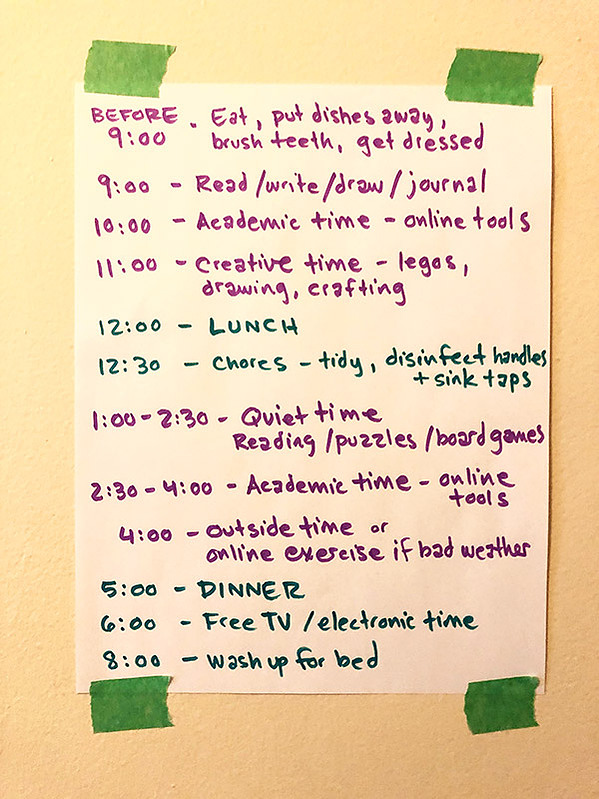 BEFORE 9:00 - Eat, put dishes away,
brush teeth, get dressed
9:00 - Read/write/draw/journal
10:00 - Academic time - online tools
11:00 - Creative time - legos,
drawing, crafting
12:00 - LUNCH
12:30 - Chores - tidy, disinfect handles
+ sink taps
1:00-2:30 - Quiet time
Reading/puzzles/board games
2:30-4:00 - Academic time - online
tools
4:00 - outside time or
online exercise if bad weather
5:00 - DINNER
6:00 - Free TV/electronic time
8:00 - wash up for bed